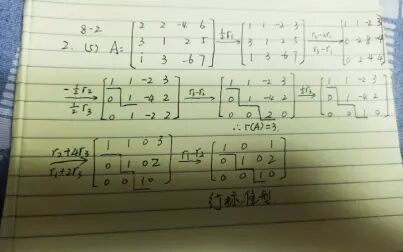 8-2
2. (5) A= [2 2 -4 6; 3 1 2 5; 1 3 -6 7] ½r₁→ [1 1 -2 3; 3 1 2 5; 1 3 -6 7] r₂-3r₁ r₃-r₁→ [1 1 -2 3; 0 -2 8 -4; 0 2 -4 4]
-½r₂ ½r₃→ [1 1 -2 3; 0 1 -4 2; 0 1 -2 2] r₃-r₂→ [1 1 -2 3; 0 1 -4 2; 0 0 2 0] ½r₃→ [1 1 -2 3; 0 1 -4 2; 0 0 1 0]
∴r(A)=3
r₂+4r₃ r₁+2r₃→ [1 1 0 3; 0 1 0 2; 0 0 1 0] r₁-r₂→ [1 0 1; 0 1 0 2; 0 0 1 0]
行标准型